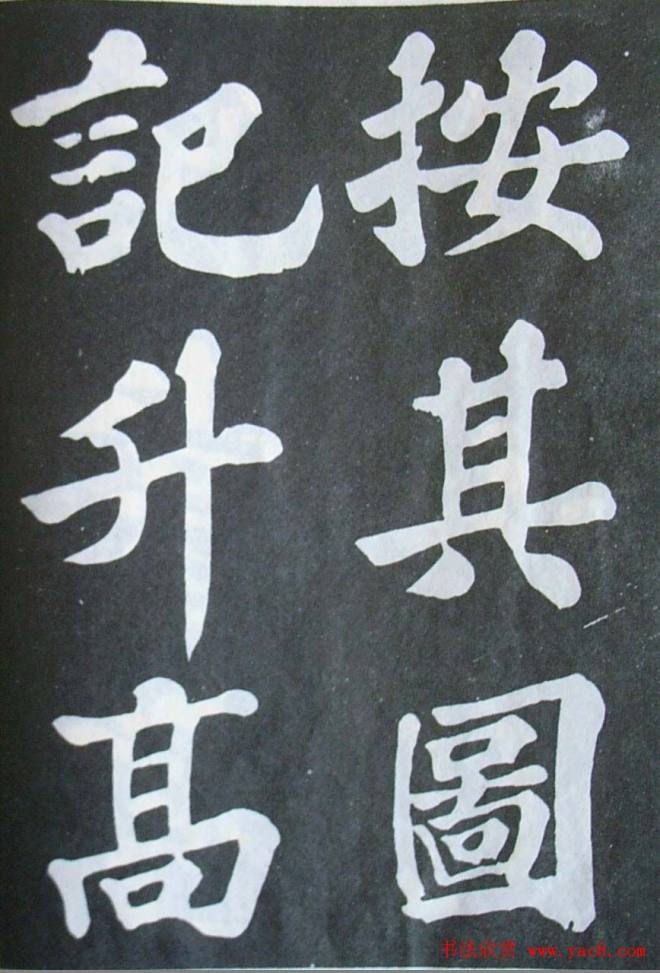 按其圖
記升高
书法欣赏 www.yac8.com